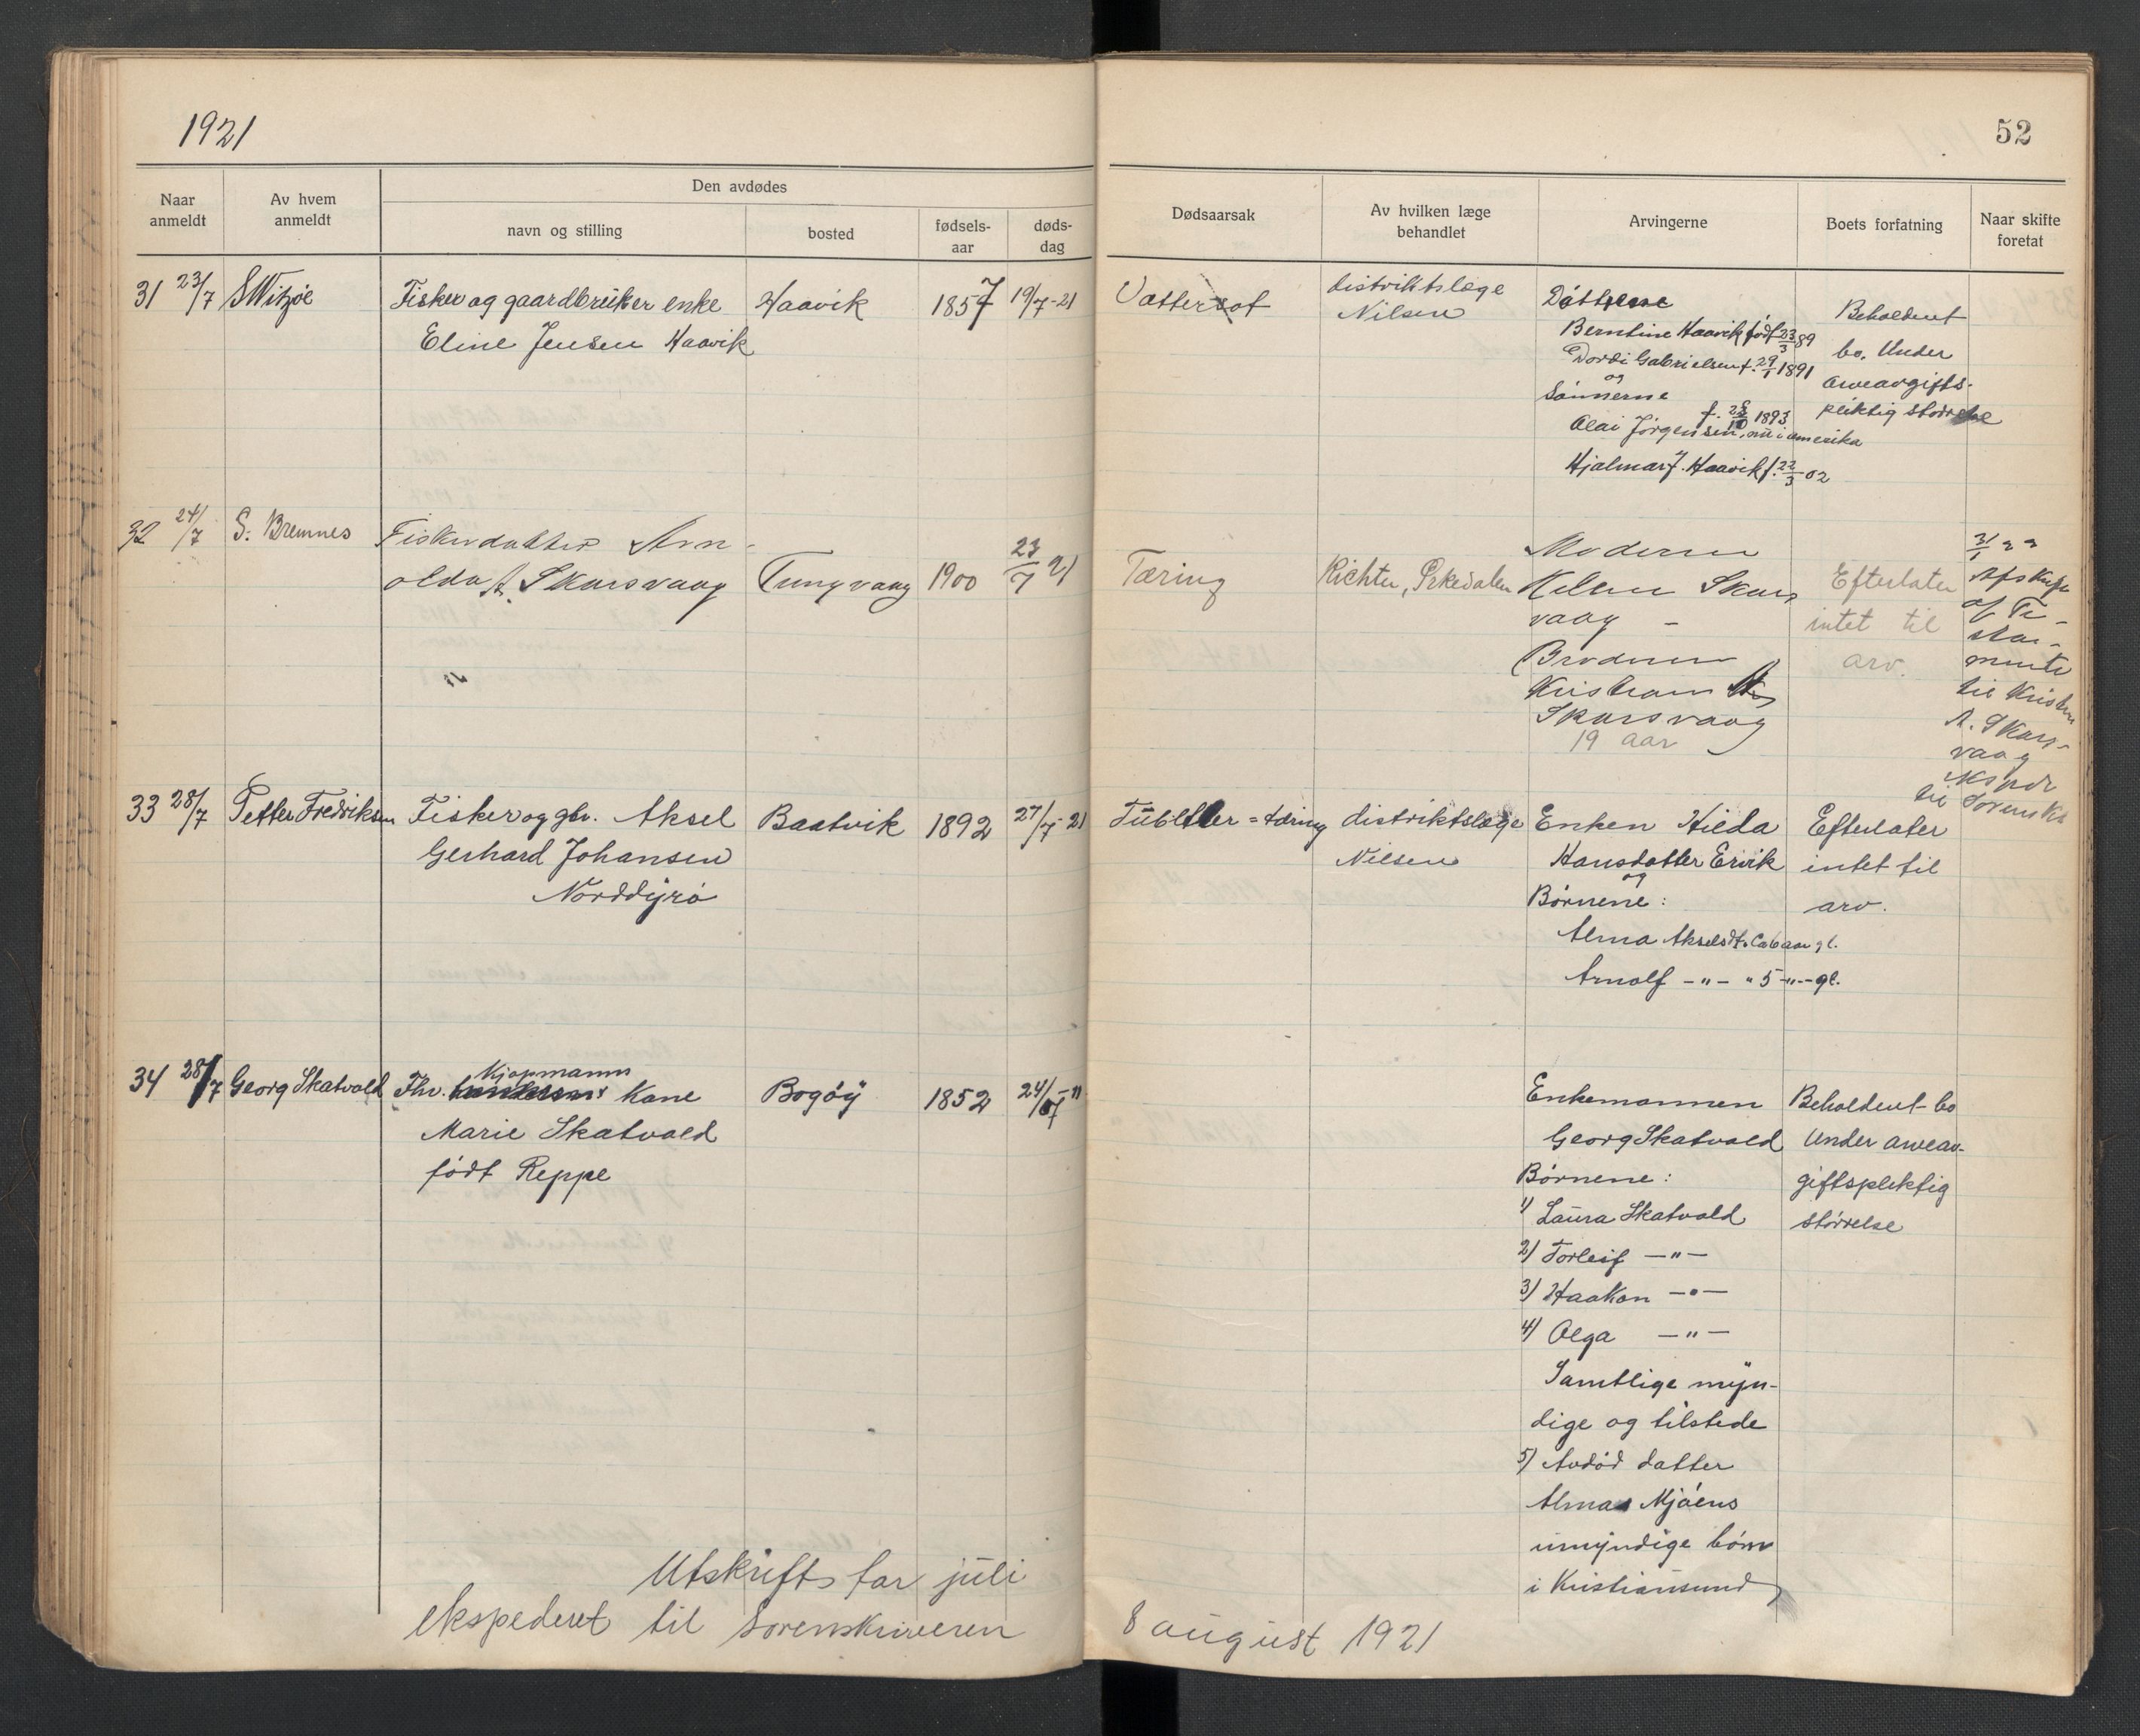 1921
52
Naar anmeldt
Av hvem anmeldt
Den avdødes
navn og stilling
bosted
fødsels-aar
døds-dag
Dødsaarsak
Av hvilken læge behandlet
Arvingerne
Boets forfatning
Naar skifte foretat
31 23/7 S Witzøe
Fisker og gaardbruker enke
Eline Jensen Haavik
Haavik
1857
19/7-21
Vattersot
distriktslæge
Nilsen
Døttrene
Berntine Haavik født 23/3 89
Dordi Gabrielsen f. 29/1 1891
og
Sønnerne
f. 28/10 1893
Olai Jørgensen, nu i amerika
Hjalmar J. Haavik f. 22/3-02
Beholdent
bo. Under
arveavgifts-
pliktig størrelse
32 24/7 S. Bremnes
Fiskerdatter Arn-
olda A. Skarsvaag
Tungvaag
1900
23/7 21
Tæring
Richter, Orkedalen
Moderen
Helene Skars
vaag -
Broderen
Kristian
Skarsvaag
19 aar
Efterlater
intet til
arv.
31/1 22
Afskrift
af Te-
sta-
mente
til Kristian
A. Skars-
vaag
eksped
til Sorensk
33 28/7 Petter Fredriksen
Fisker og gbr. Aksel
Gerhard Johansen
Norddyrø
Baatvik
1892
27/7-21
distriktslæge
Nilsen
Enken Hilda
Hansdatter Ervik
og
Børnene:
Alma Akselsdt. Ca 6 aar gl.
Arnolf -"- " 5 -"- gl.
Efterlater
intet til
arv.
34 28/7 Georg Skatvold
Kjøpmann
Fhv. Kone
Marie Skatvold
født Reppe
Bogøy
1852
24/7-"
Enkemannen
Georg Skatvold
Børnene:
1) Laura Skatvold
2) Torleif -"-
3) Haakon -"-
4) Olga -"-
Samtlige myn-
dige og tilstede
5) Avdød datter
Almas Mjøens
umyndige børn
i Kristiansund
Beholdent bo
Under arveav-
giftspliktig
størrelse
Utskrift for juli
ekspederet til Sorenskriveren
8 august 1921